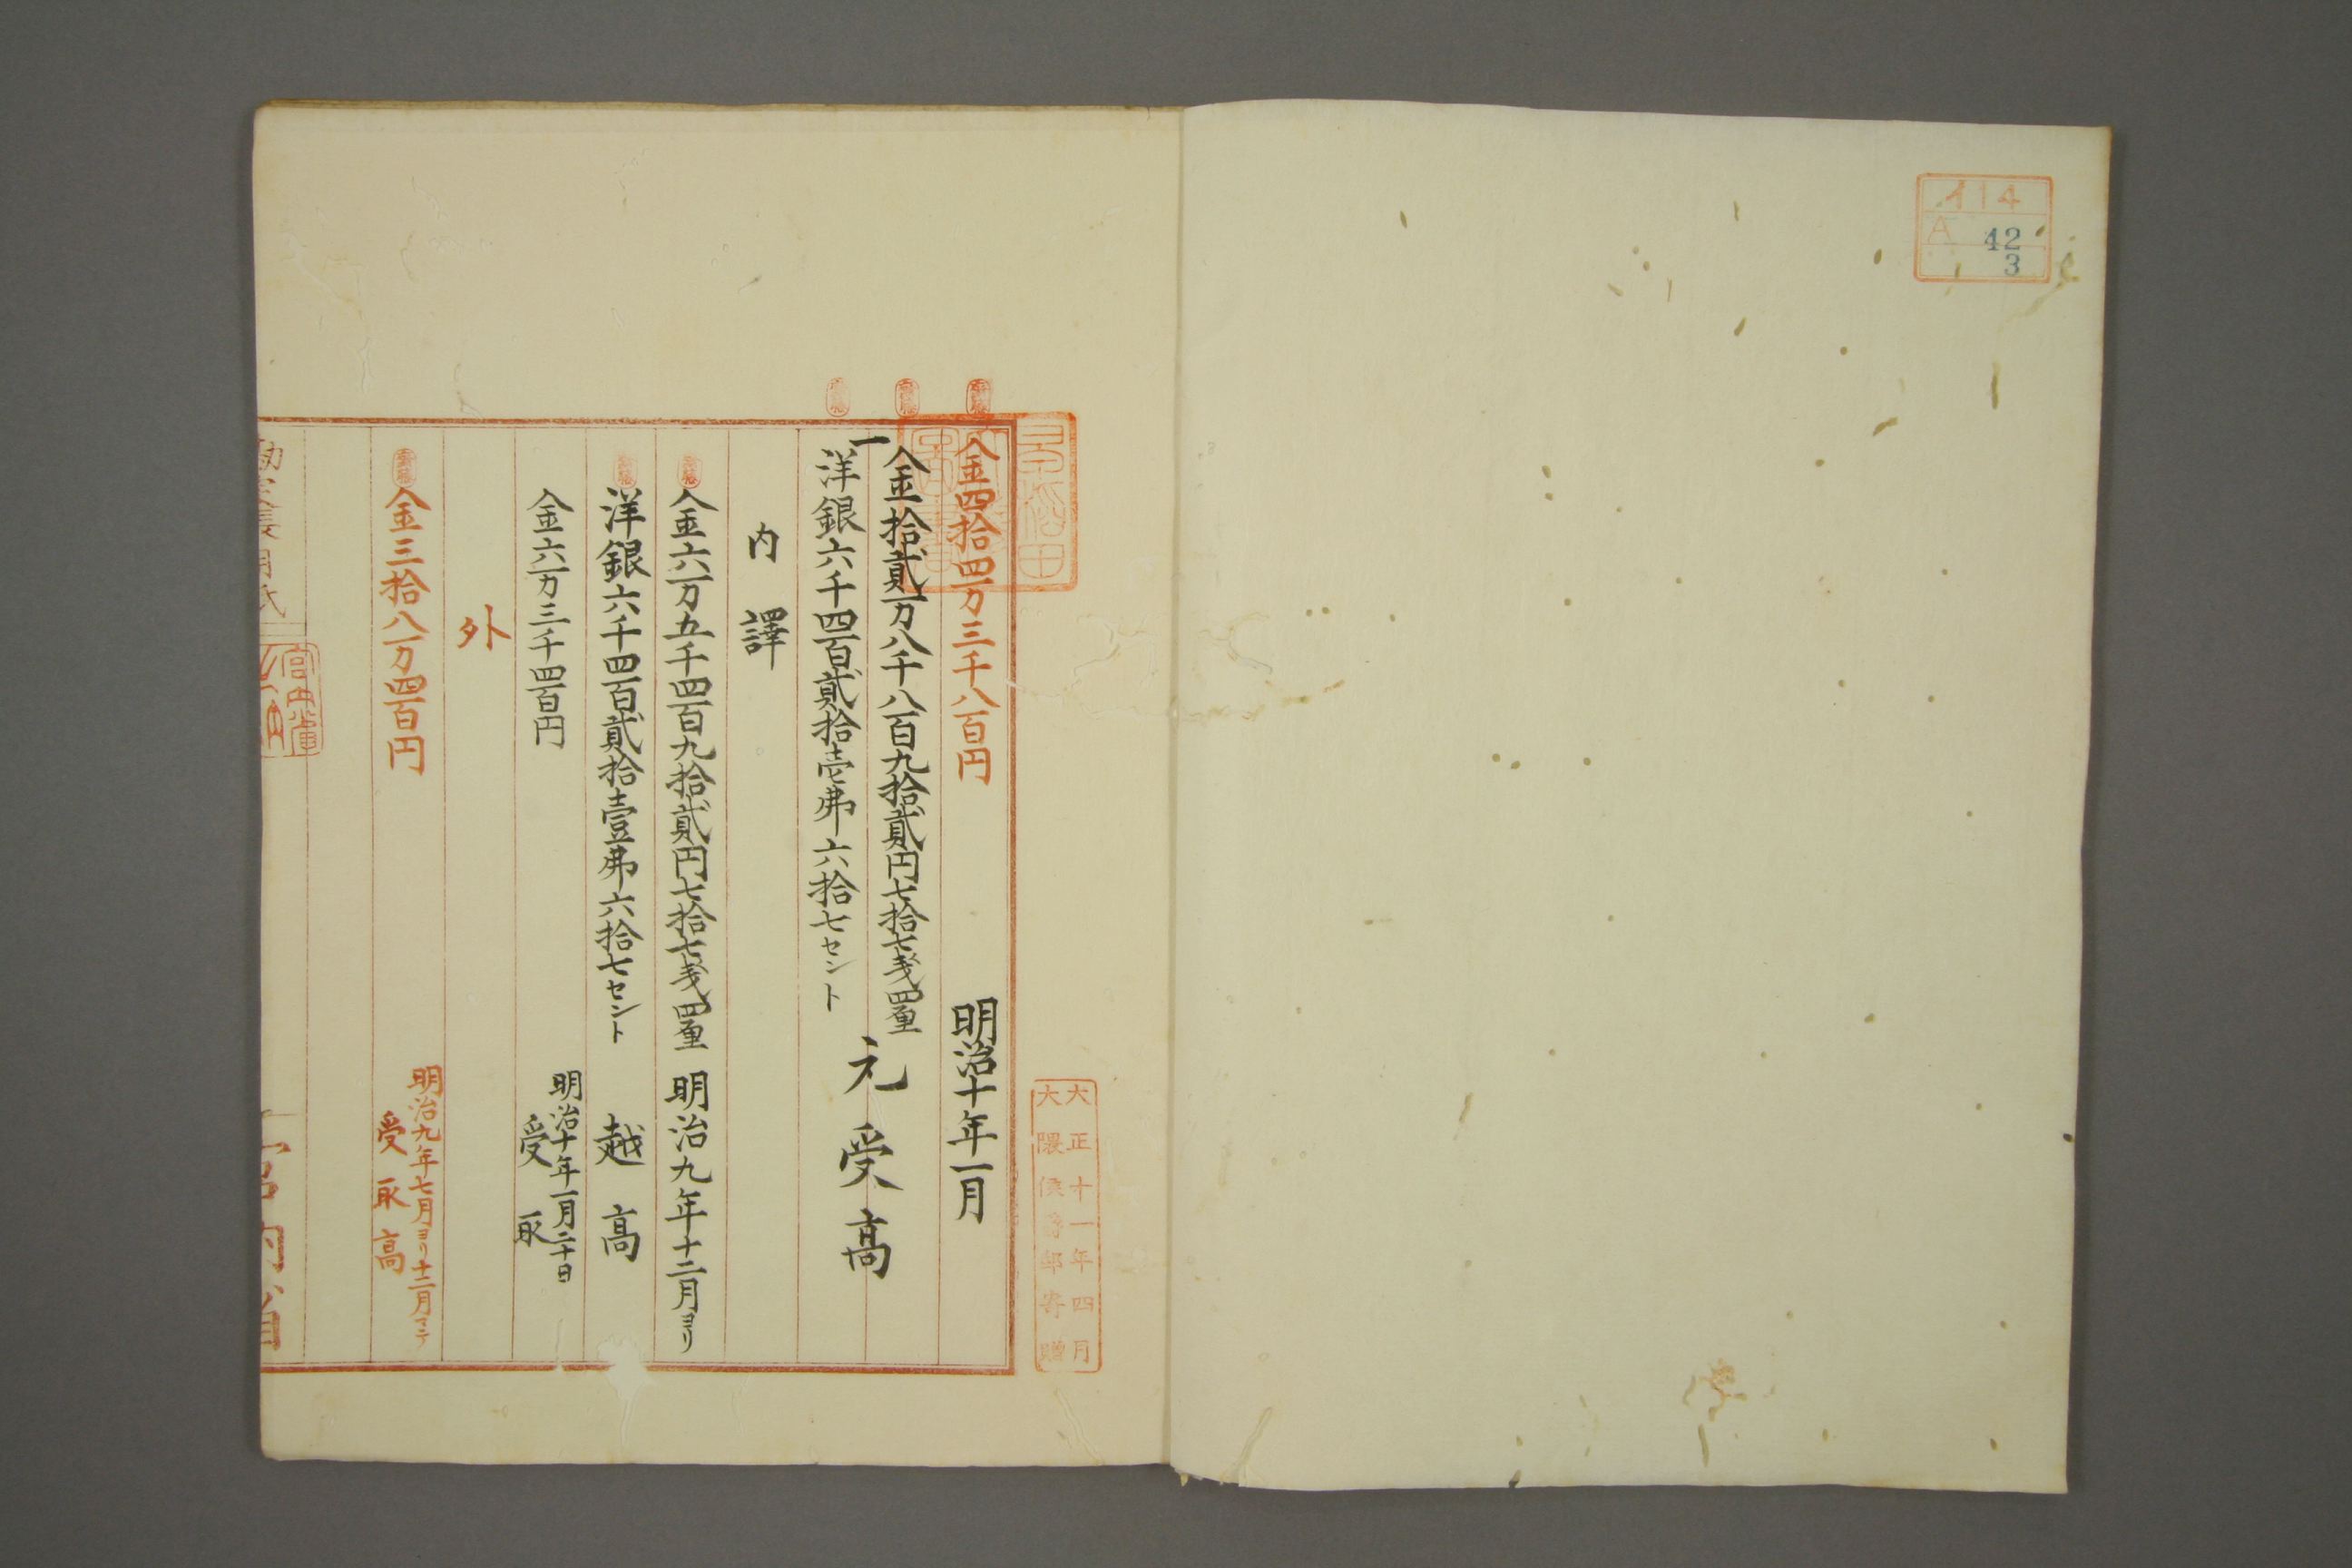 114
A 42
3
大正十一年四月
大隈侯爵邸寄贈
明治十年一月
金四拾四万三千八百円
一金拾貳万八千八百九拾貳円七拾七戔四厘
洋銀六千四百貳拾壱弗六拾七セント
元受高
内譯
金六万五千四百九拾貳円七拾七戔四厘
明治九年十二月ヨリ
洋銀六千四百貳拾壹弗六拾七セント
越高
金六万三千四百円
明治十年一月二十日
受取
外
金三拾八万四百円
明治九年七月ヨリ十二月マテ
受取高
宮内省